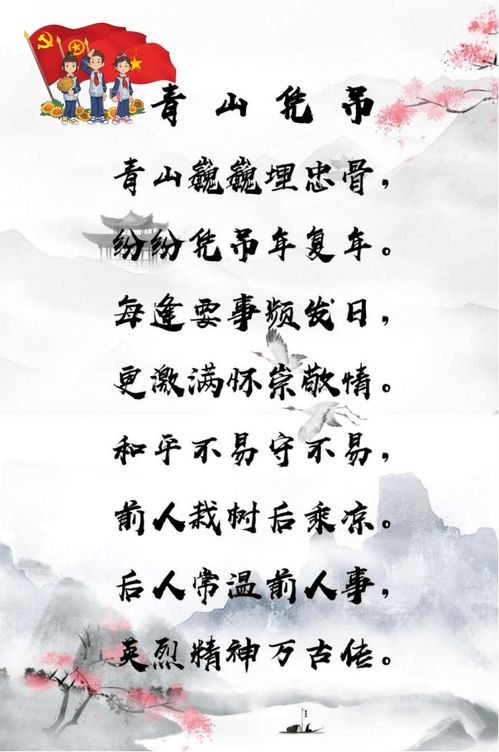 青山凭吊
青山巍巍埋忠骨，
纷纷凭吊年复年。
每逢要事频发日，
更激满怀崇敬情。
和平不易守不易，
前人栽树后乘凉。
后人常温前人事，
英烈精神万古传。